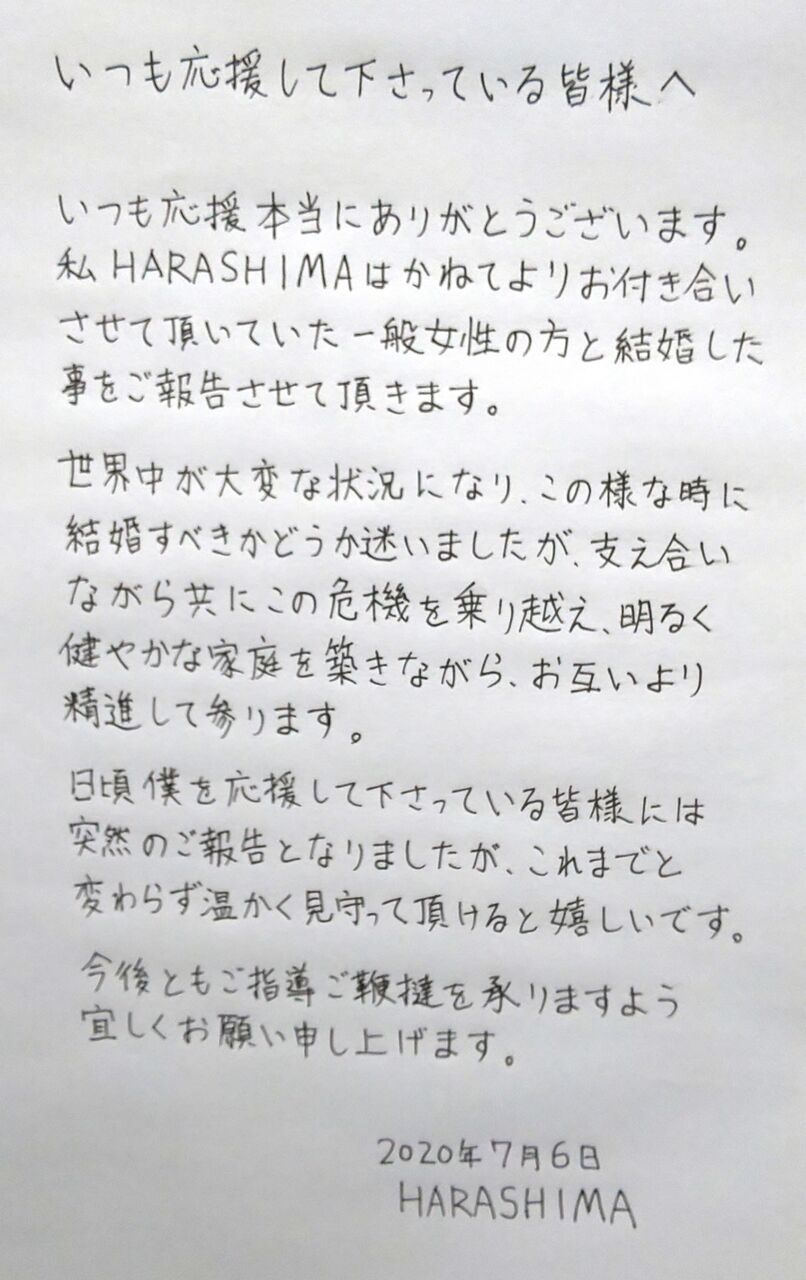 いつも応援して下さっている皆様へ
いつも応援本当にありがとうございます。
私HARASHIMAはかねてよりお付き合い
させて頂いていた一般女性の方と結婚した
事をご報告させて頂きます。
世界中が大変な状況になり、この様な時に
結婚すべきかどうか迷いましたが、支え合い
ながら共にこの危機を乗り越え、明るく
健やかな家庭を築きながら、お互いより
精進して参ります。
日頃僕を応援して下さっている皆様には
突然のご報告となりましたが、これまでと
変わらず温かく見守って頂けると嬉しいです。
今後ともご指導ご鞭撻を承りますよう
宜しくお願い申し上げます。
2020年7月6日
HARASHIMA